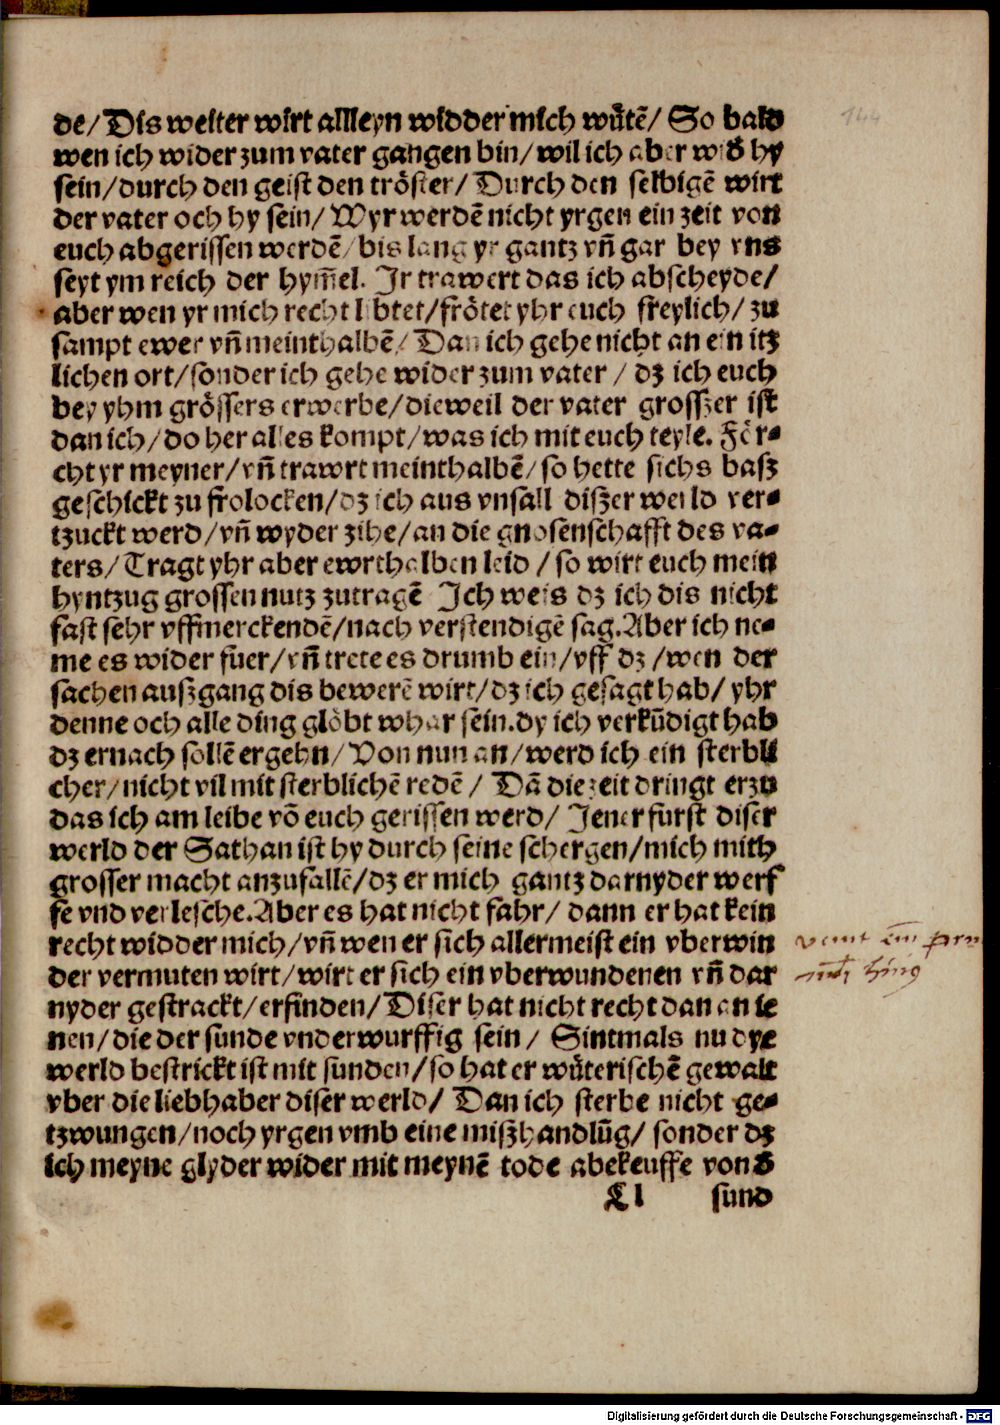 de/ Dis weiter wirt allleyn widder mich wůtē/ So bald
wen ich wider zum vater gangen bin/ wil ich aber wid hy
sein/durch den geist den tröster/ Durch den selbigē wirt
der vater och hy sein/ Wyr werdē nicht yrgen ein zeit von
euch abgerissen werdē/bis lang yr gantz vn̄ gar bey vns
seyt ym reich der hym̄el. Ir trawert das ich abscheyde/
aber wen yr mich recht libtet/frötet yhr euch freylich/ zu
sampt ewer vn̄ meinthalbē/ Dan ich gehe nicht an ein itz
lichen ort/sonder ich gehe wider zum vater / dz ich euch
bey yhm grössers erwerbe/dieweil der vater grosszer ist
dan ich/do her alles kompt/was ich mit euch teyle. För-
cht yr meyner/vn̄ trawrt meinthalbē/so hette sichs basz
geschickt zu frolocken/dz ich aus vnfall diszer werld ver-
tzuckt werd/vn̄ wyder zihe/an die gnosenschafft des va-
ters/ Tragt yhr aber ewrthalben leid / so wirt euch mein
hyntzug grossen nutz zutragē Ich weis dz ich dis nicht
fast sehr vffmerckendē/nach verstendigē sag. Aber ich ne-
me es wider fuer/vn̄ trete es drumb ein/vff dz /wen der
sachen auszgang dis bewerē wirt/dz ich gesagt hab/ yhr
denne och alle ding glöbt whar sein.dy ich verkūdigt hab
dz ernach sollē ergehn/ Von nun an/werd ich ein sterbli
cher/nicht vil mit sterblichē redē / Dā die zeit dringt erzu
das ich am leibe vō euch gerissen werd/ Jener fürst diser
werld der Sathan ist hy durch seine schergen/mich mith
grosser macht anzufallē/dz er mich gantz darnyder werf
fe vnd verlesche. Aber es hat nicht fahr/ dann er hat kein
recht widder mich/vn̄ wen er sich allermeist ein vberwin
der vermuten wirt/wirt er sich ein vberwundenen vn̄ dar
nyder gestrackt/erfinden/ Diser hat nicht recht dan an ie
nen/die der sunde vnderwurffig sein/ Sintmals nu dye
werld bestrickt ist mit sunden/so hat er wůterischē gewalt
vber die liebhaber diser werld/ Dan ich sterbe nicht ge-
tzwungen/noch yrgen vmb eine miszhandlūg/ sonder dz
ich meyne glyder wider mit meynē tode abekeuffe von d
Ll sund
144
Digitalisierung gefördert durch die Deutsche Forschungsgemeinschaft - DFG